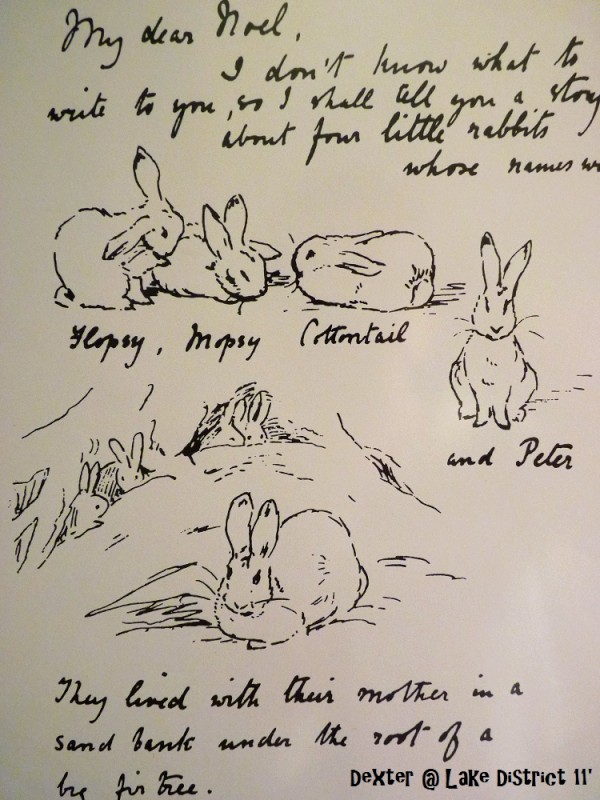 My dear Noel,
I don't know what to
write to you, so I shall tell you a story
about four little rabbits
whose names we
Flopsy, Mopsy Cottontail
and Peter
They lived with their mother in a
sand bank under the root of a
big fir tree.
Dexter @ Lake District 11'